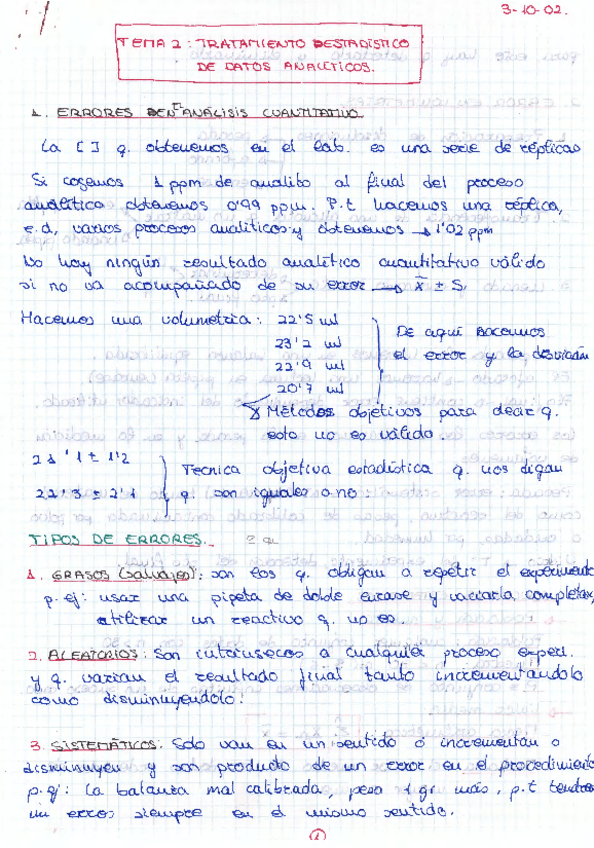 3-10-02.
TEMA 2: TRATAMIENTO ESTADÍSTICO
DE DATOS ANALÍTICOS.
1. ERRORES EN ANÁLISIS CUANTITATIVO
La [ ] q. obtenemos en el lab. es una serie de réplicas
Si cogemos 1 ppm de analito al final del proceso
analítico obtenemos 0'99 ppm. P.t hacemos una réplica,
e.d, varios procesos analíticos y obtenemos → 1'02 ppm
No hay ningún resultado analítico cuantitativo válido
si no va acompañado de su error → x̄ ± S,
Hacemos una volumetría: 22'5 ml
23'2 ml
22'9 ml
20'7 ml
De aquí sacamos
el error y la desviación
Métodos objetivos para decir q.
esto no es válido.
21'1 ± 1'2
22'3 ± 2'1
Tecnica objetiva estadística q. nos digan
q. son iguales o no.
TIPOS DE ERRORES.
1. GRASOS (Salvajes): son los q. obligan a repetir el experimento
p.ej: usar una pipeta de doble enrase y vaciarla completa,
utilizar un reactivo q. no es.
2. ALEATORIOS: Son intrínsecos a cualquier proceso experi.
y q. varían el resultado final tanto incrementándolo
como disminuyéndolo.
3. SISTEMÁTICOS: Solo van en un sentido ó incrementan o
disminuyen y son producto de un error en el procedimiento
p.ej: La balanza mal calibrada, pesa 1 gr. más, p.t tendras
un error siempre en el mismo sentido.
1